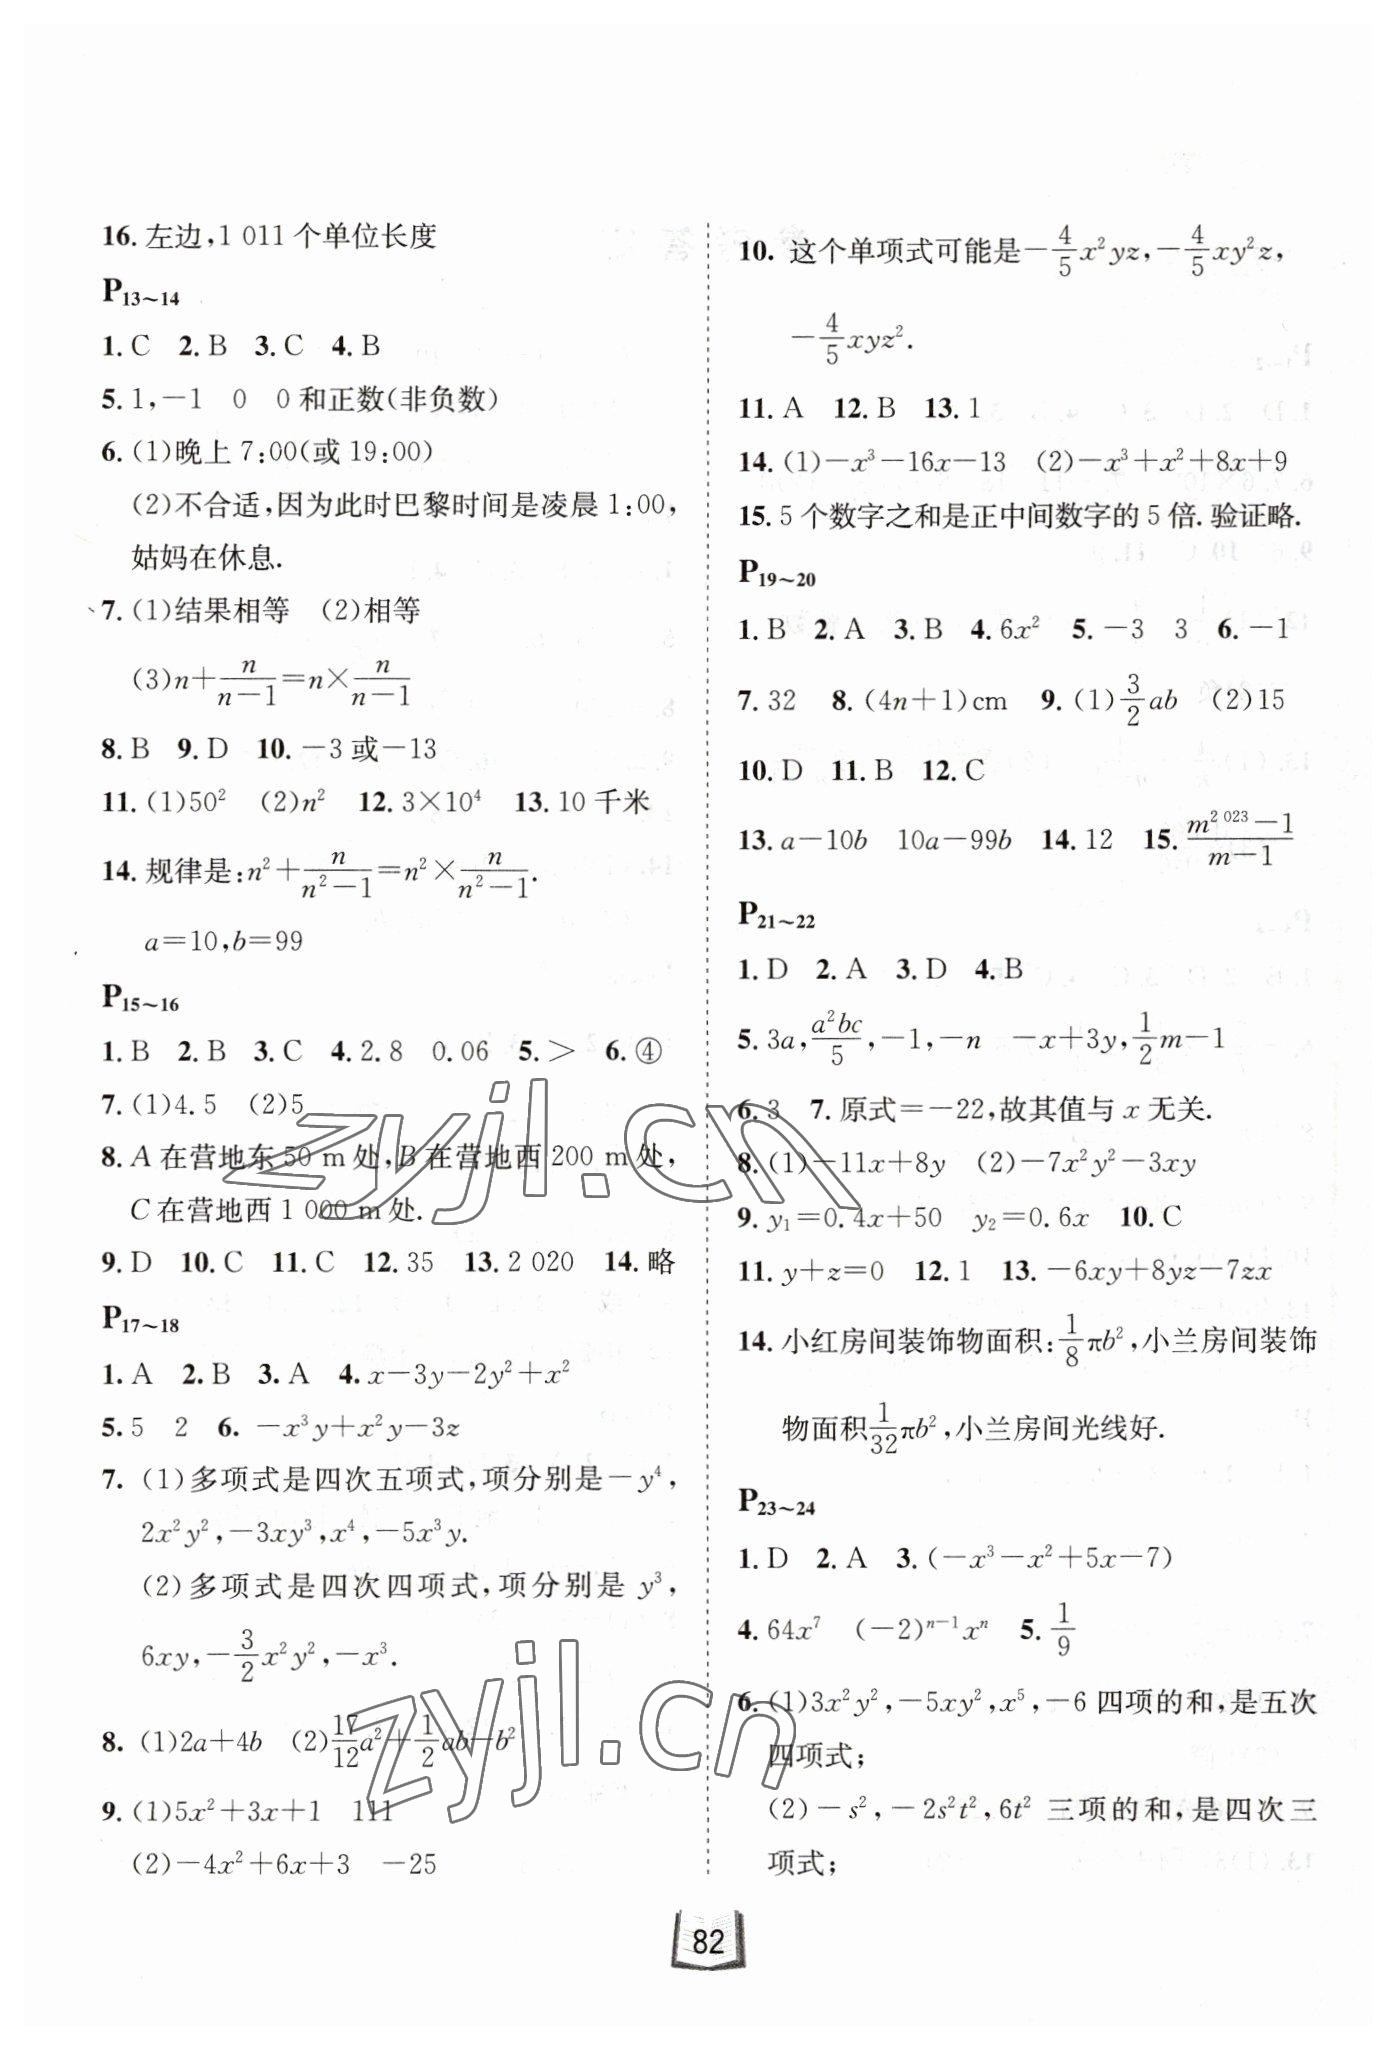 16. 左边,1 011 个单位长度
P13~14
1. C 2. B 3. C 4. B
5. 1,-1 0 0 和正数(非负数)
6. (1)晚上 7:00(或 19:00)
(2)不合适,因为此时巴黎时间是凌晨 1:00,
姑妈在休息.
7. (1)结果相等 (2)相等
(3)n+n/(n-1)=n×n/(n-1)
8. B 9. D 10. -3 或-13
11. (1)50² (2)n² 12. 3×10⁴ 13. 10 千米
14. 规律是:n²+n/(n²-1)=n²×n/(n²-1).
a=10,b=99
P15~16
1. B 2. B 3. C 4. 2.8 0.06 5. > 6. ④
7. (1)4.5 (2)5
8. A 在营地东 50 m 处,B 在营地西 200 m 处,
C 在营地西 1 000 m 处.
9. D 10. C 11. C 12. 35 13. 2 020 14. 略
P17~18
1. A 2. B 3. A 4. x-3y-2y²+x²
5. 5 2 6. -x³y+x²y-3z
7. (1)多项式是四次五项式,项分别是-y⁴,
2x²y²,-3xy³,x⁴,-5x³y.
(2)多项式是四次四项式,项分别是 y³,
6xy,-3/2x²y²,-x³.
8. (1)2a+4b (2)17/12a²+1/2ab+b²
9. (1)5x²+3x+1 111
(2)-4x²+6x+3 -25
10. 这个单项式可能是-4/5x²yz,-4/5xy²z,
-4/5xyz².
11. A 12. B 13. 1
14. (1)-x³-16x-13 (2)-x³+x²+8x+9
15. 5 个数字之和是正中间数字的 5 倍. 验证略.
P19~20
1. B 2. A 3. B 4. 6x² 5. -3 3 6. -1
7. 32 8. (4n+1)cm 9. (1)3/2ab (2)15
10. D 11. B 12. C
13. a-10b 10a-99b 14. 12 15. (m²⁰²³-1)/(m-1)
P21~22
1. D 2. A 3. D 4. B
5. 3a,a²bc/5,-1,-n -x+3y,1/2m-1
6. 3 7. 原式=-22,故其值与 x 无关.
8. (1)-11x+8y (2)-7x²y²-3xy
9. y₁=0.4x+50 y₂=0.6x 10. C
11. y+z=0 12. 1 13. -6xy+8yz-7zx
14. 小红房间装饰物面积:1/8πb²,小兰房间装饰
物面积1/32πb²,小兰房间光线好.
P23~24
1. D 2. A 3. (-x³-x²+5x-7)
4. 64x⁷ (-2)ⁿ⁻¹xⁿ 5. 1/9
6. (1)3x²y²,-5xy²,x⁵,-6 四项的和,是五次
四项式;
(2)-s²,-2s²t²,6t² 三项的和,是四次三
项式;
82
zyjl.cn
zyjl.cn